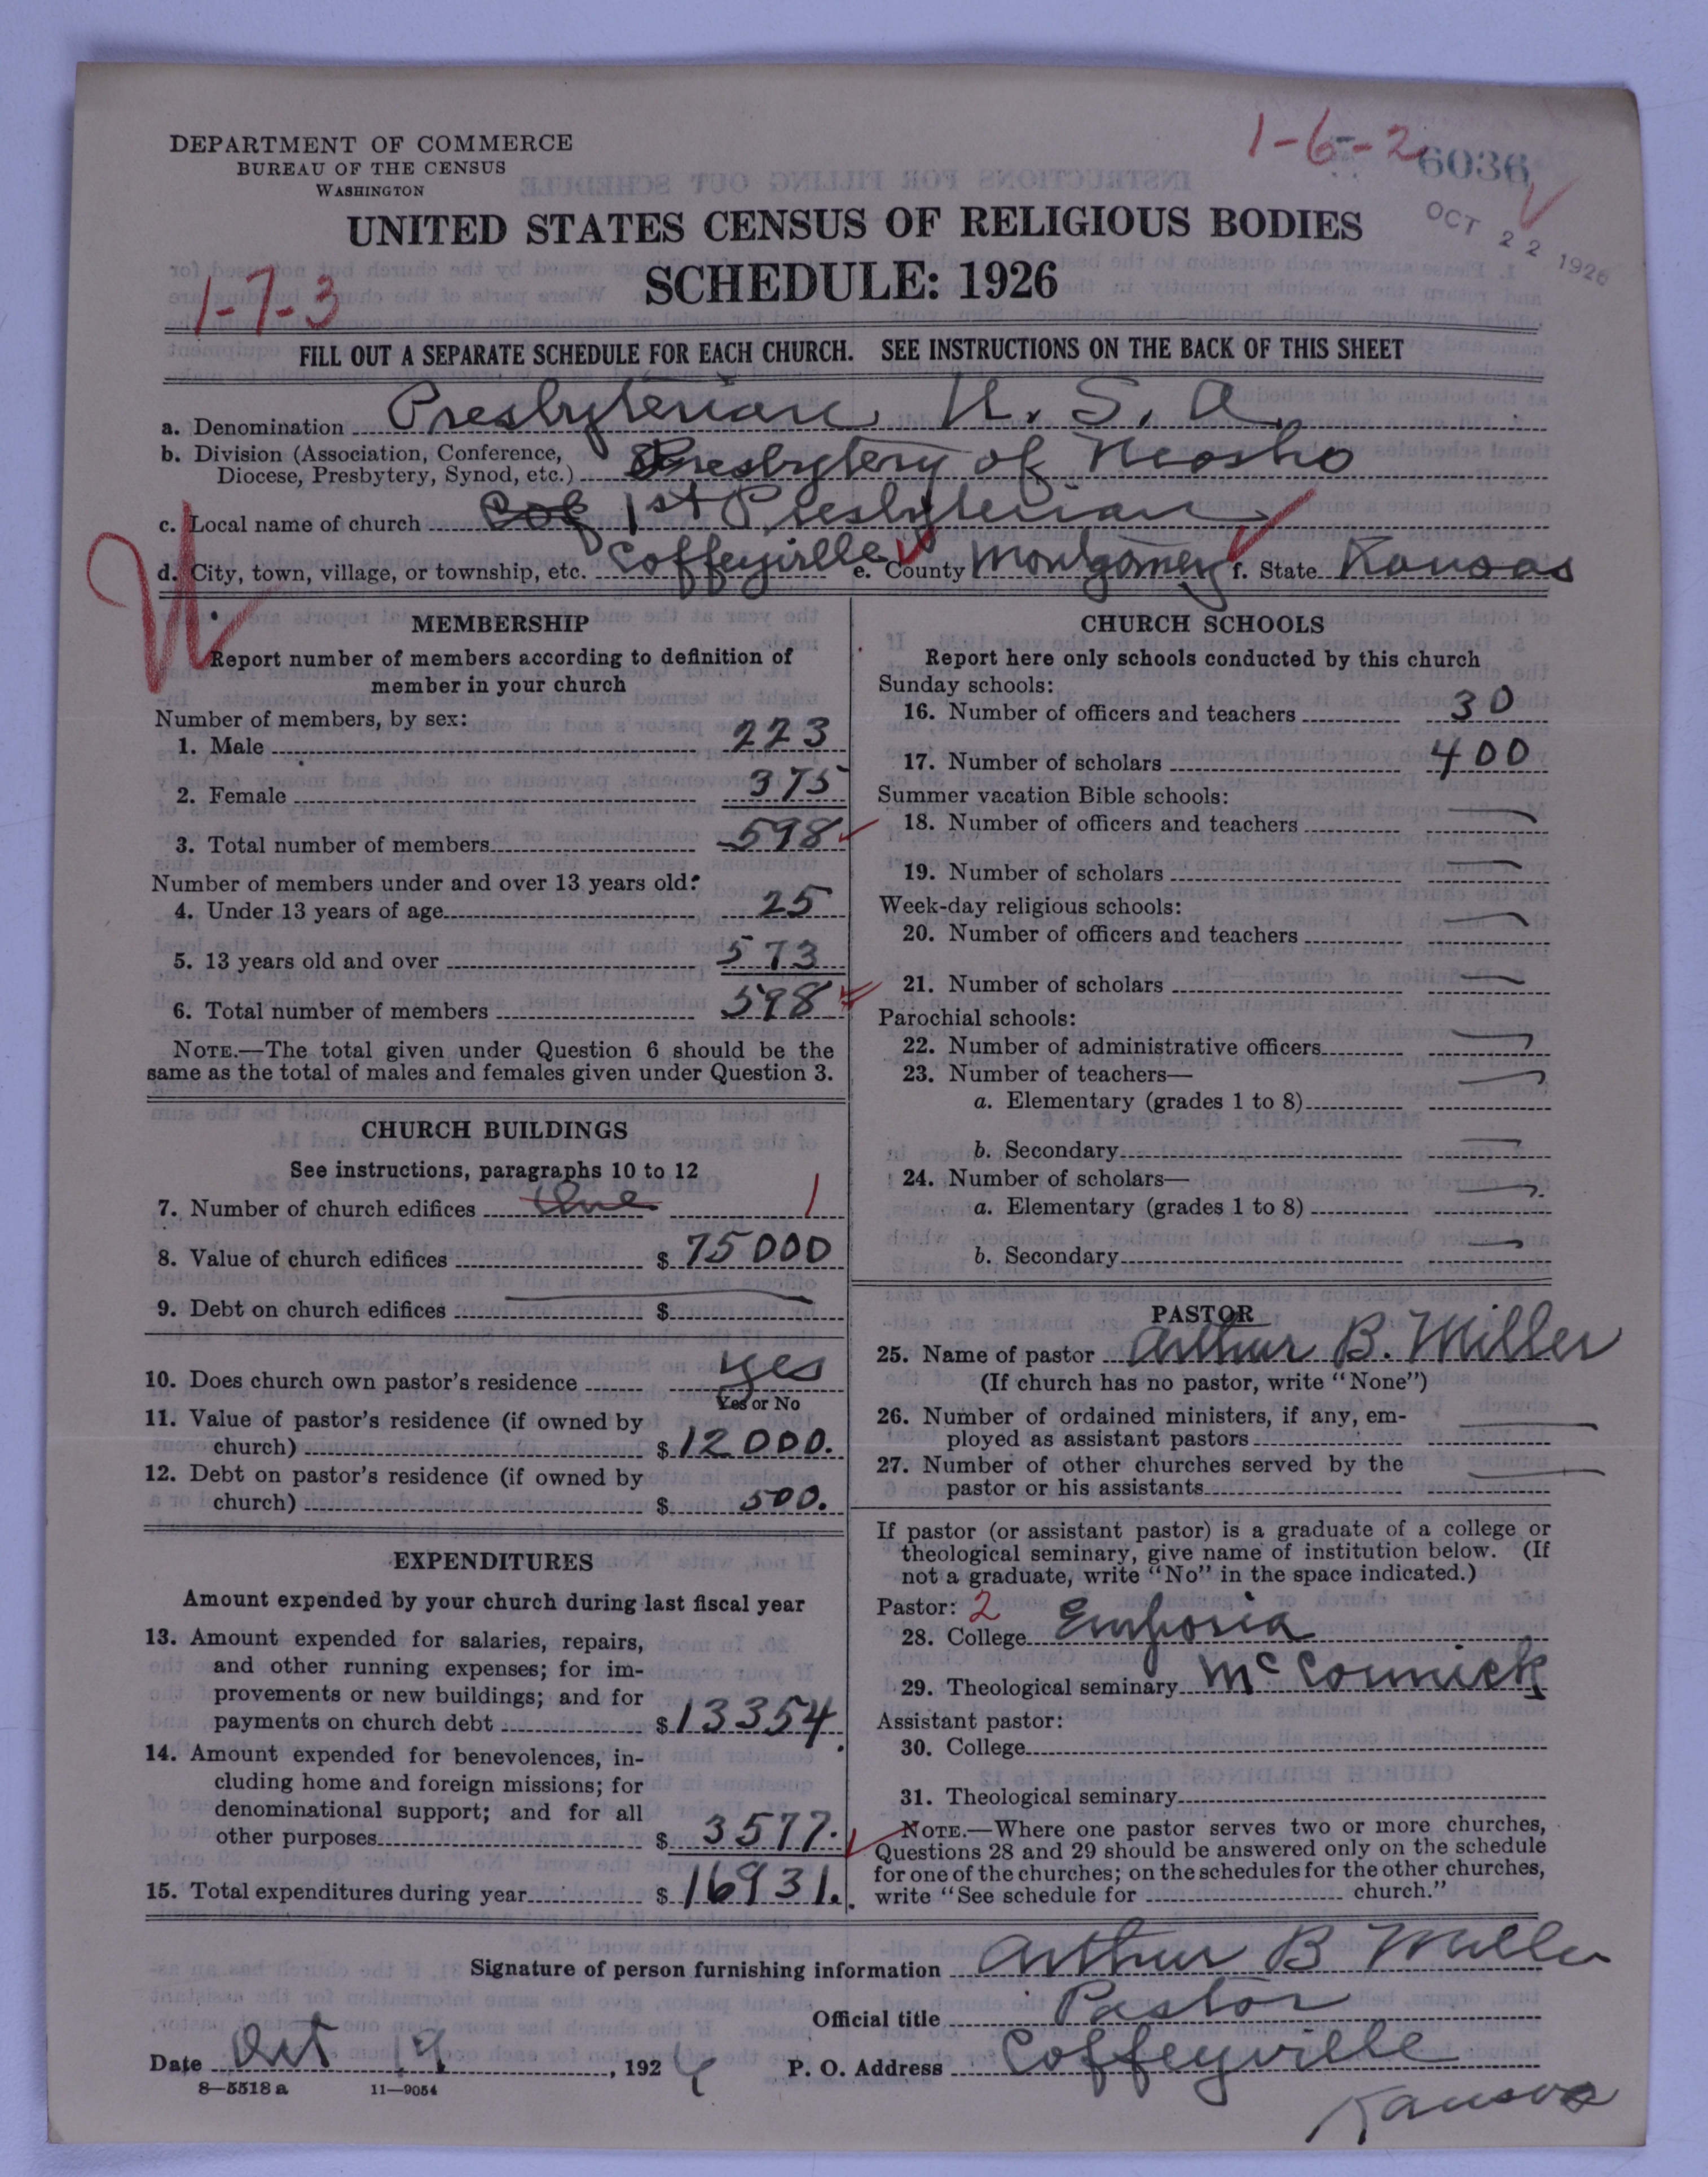 DEPARTMENT OF COMMERCE
BUREAU OF THE CENSUS
WASHINGTON
1-6-2
6036
OCT 22 1926
UNITED STATES CENSUS OF RELIGIOUS BODIES
SCHEDULE: 1926
1-7-3
FILL OUT A SEPARATE SCHEDULE FOR EACH CHURCH. SEE INSTRUCTIONS ON THE BACK OF THIS SHEET
a. Denomination Presbyterian U. S. A.
b. Division (Association, Conference,
Diocese, Presbytery, Synod, etc.) Presbytery of Neosho
c. Local name of church Cof 1st Presbyterian
d. City, town, village, or township, etc. Coffeyville e. County Montgomery f. State Kansas
MEMBERSHIP
Report number of members according to definition of
member in your church
Number of members, by sex:
1. Male 223
2. Female 375
3. Total number of members 598
Number of members under and over 13 years old:
4. Under 13 years of age 25
5. 13 years old and over 573
6. Total number of members 598
NOTE.—The total given under Question 6 should be the
same as the total of males and females given under Question 3.
CHURCH BUILDINGS
See instructions, paragraphs 10 to 12
7. Number of church edifices One 1
8. Value of church edifices $ 75000
9. Debt on church edifices $
10. Does church own pastor's residence yes
Yes or No
11. Value of pastor's residence (if owned by
church) $ 12000.
12. Debt on pastor's residence (if owned by
church) $ 500.
EXPENDITURES
Amount expended by your church during last fiscal year
13. Amount expended for salaries, repairs,
and other running expenses; for im-
provements or new buildings; and for
payments on church debt $ 13354.
14. Amount expended for benevolences, in-
cluding home and foreign missions; for
denominational support; and for all
other purposes $ 3577.
15. Total expenditures during year $ 16931.
CHURCH SCHOOLS
Report here only schools conducted by this church
Sunday schools:
16. Number of officers and teachers 30
17. Number of scholars 400
Summer vacation Bible schools:
18. Number of officers and teachers —
19. Number of scholars —
Week-day religious schools:
20. Number of officers and teachers —
21. Number of scholars —
Parochial schools:
22. Number of administrative officers —
23. Number of teachers— —
a. Elementary (grades 1 to 8)
b. Secondary —
24. Number of scholars—
a. Elementary (grades 1 to 8) —
b. Secondary —
PASTOR
25. Name of pastor Arthur B. Miller
(If church has no pastor, write "None")
26. Number of ordained ministers, if any, em-
ployed as assistant pastors —
27. Number of other churches served by the
pastor or his assistants —
If pastor (or assistant pastor) is a graduate of a college or
theological seminary, give name of institution below. (If
not a graduate, write "No" in the space indicated.)
Pastor: 2
28. College Emporia
29. Theological seminary McCormick
Assistant pastor:
30. College
31. Theological seminary
NOTE.—Where one pastor serves two or more churches,
Questions 28 and 29 should be answered only on the schedule
for one of the churches; on the schedules for the other churches,
write "See schedule for church."
Signature of person furnishing information Arthur B Miller
Official title Pastor
Date Oct 19, 1926 P. O. Address Coffeyville
Kansas
8—5518 a 11—9054